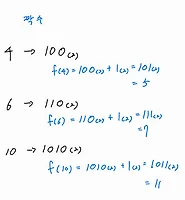 짝수
4 → 100(2)
f(4) = 100(2) + 1(2) = 101(2)
= 5
6 → 110(2)
f(6) = 110(2) + 1(2) = 111(2)
= 7
10 → 1010(2)
f(10) = 1010(2) + 1(2) = 1011(2)
= 11